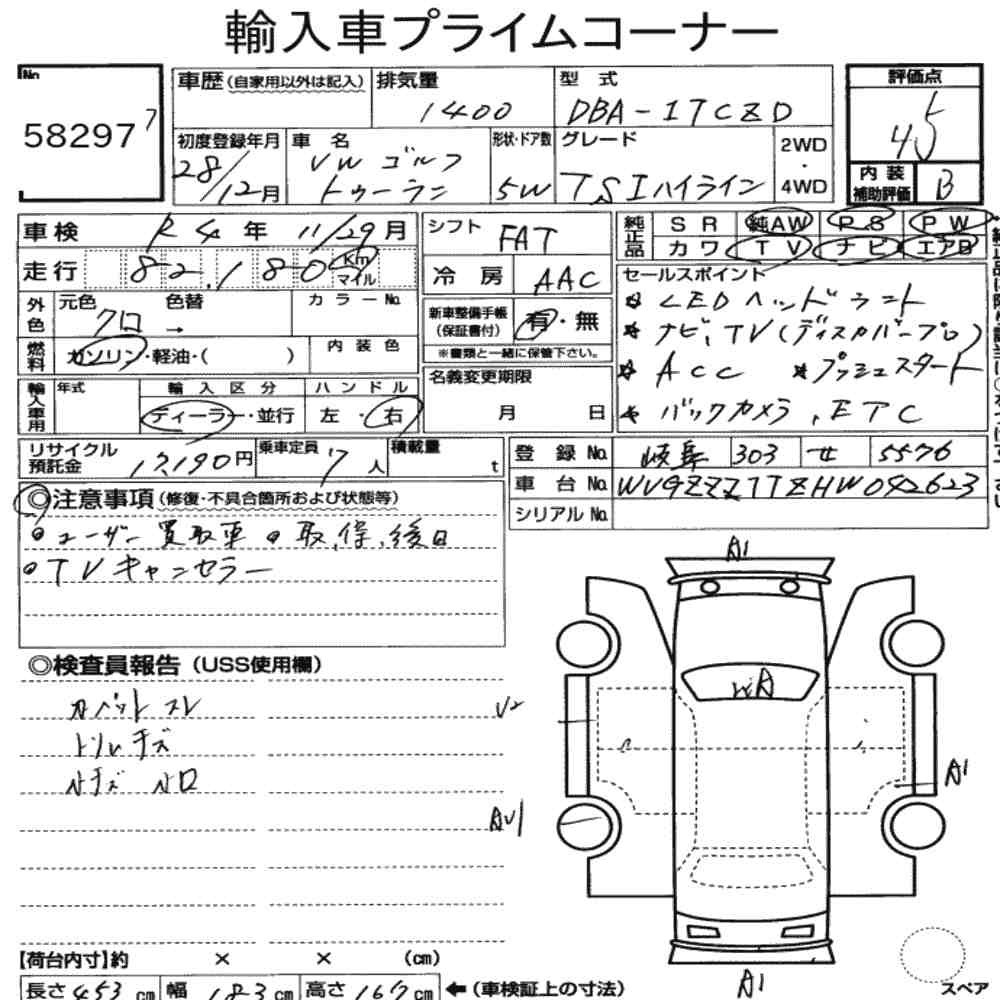 輸入車プライムコーナー
No
58297 7
車歴 (自家用以外は記入)
排気量
1400
型式
DBA-1TCZD
評価点
4.5
内装
補助評価
B
初度登録年月
28/12月
車名
VW ゴルフ
トゥーラン
形状・ドア数
5W
グレード
TSIハイライン
2WD
・
4WD
車検 R4年 11/29月
走行 82,180 Km
マイル
シフト FAT
冷房 AAC
純正品
SR 純AW PS PW
カワ TV ナビ エアB
外色
元色 色替 カラーNo.
クロ →
燃料
ガソリン・軽油・( )
内装色
新車整備手帳
(保証書付)
有・無
※書類と一緒に保管下さい。
セールスポイント
☆ LEDヘッドライト
☆ ナビ、TV(ディスカバープロ)
☆ ACC ☆プッシュスタート
☆ バックカメラ、ETC
輸入車用
年式
輸入区分
ディーラー・並行
ハンドル
左・右
名義変更期限
月 日
リサイクル
預託金
17,190円
乗車定員 7人
積載量 t
登録No. 岐阜 303 せ 5576
車台No. WVGZZZ1TZHW042623
シリアルNo.
◎注意事項 (修復・不具合箇所および状態等)
ユーザー買取車 取、保、後日
TVキャンセラー
◎検査員報告 (USS使用欄)
カペットスレ
トリムキズ
Nキズ Nロ
A1
WA
A1
A1
【荷台内寸】約 × × (cm)
長さ 453 cm 幅 183 cm 高さ 167 cm ←(車検証上の寸法)
スペア